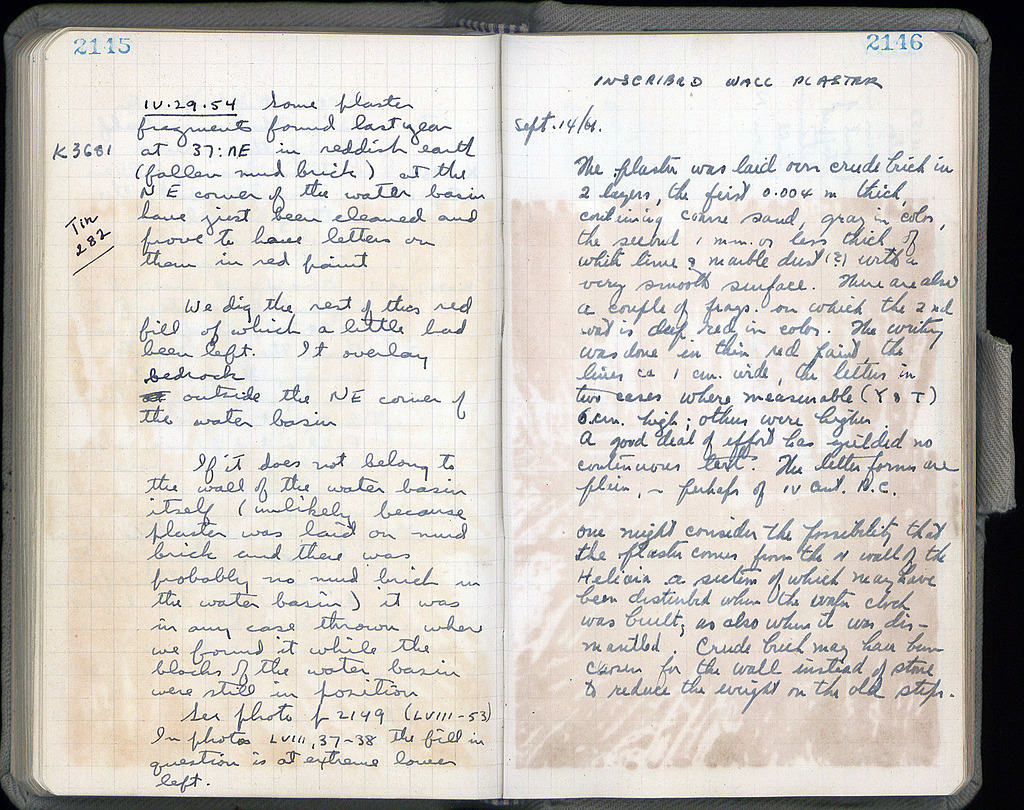 2145
IV.29.54 Some plaster
fragments found last year
K3681 at 37:NE in reddish earth
(fallen mud brick) at the
NE corner of the water basin
Tin
282
have just been cleaned and
prove to have letters on
them in red paint
We dig the rest of this red
fill of which a little had
been left. It overlay
bedrock
outside the NE corner of
the water basin
If it does not belong to
the wall of the water basin
itself (unlikely because
plaster was laid on mud
brick and there was
probably no mud brick in
the water basin) it was
in any case thrown where
we found it while the
blocks of the water basin
were still in position
See photo p 2149 (LVIII-53)
In photos LVIII, 37-38 the fill in
question is at extreme lower
left.
2146
INSCRIBED WALL PLASTER
Sept. 14/61.
The plaster was laid over crude brick in
2 layers, the first 0.004 m thick,
containing coarse sand, gray in color,
the second 1 mm. or less thick of
white lime & marble dust (?) with a
very smooth surface. There are also
a couple of frags. on which the 2nd
coat is deep red in color. The writing
was done in thin red paint, the
lines ca 1 cm. wide, the letters in
two cases where measurable (Y & T)
6 cm. high; others were higher.
A good deal of effort has yielded no
continuous text. The letter forms are
plain, ~ perhaps of IV Cent. B.C.
One might consider the possibility that
the plaster comes from the N wall of the
Heliaia a section of which may have
been disturbed when the water clock
was built; as also when it was dis-
mantled. Crude brick may have been
chosen for the wall instead of stone
to reduce the weight on the old steps.